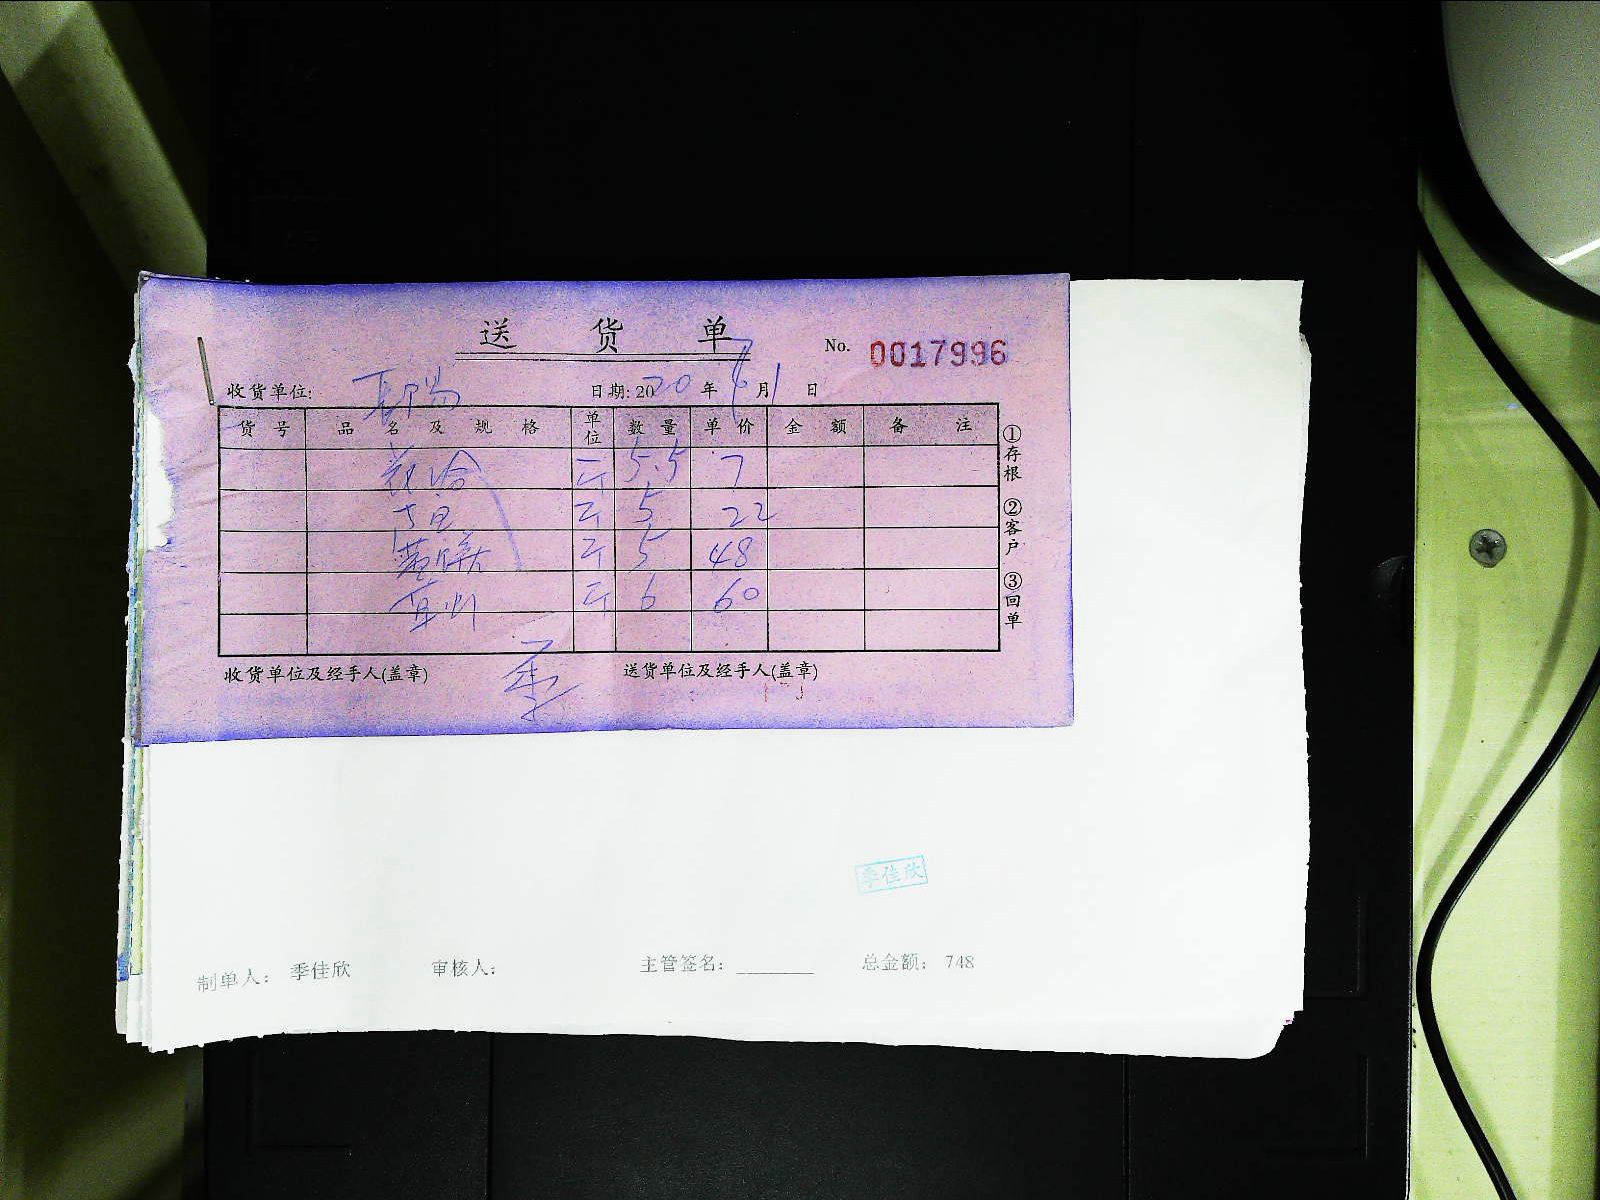 送 货 单
No. 0017996
收货单位: 日期: 2020 年 6 月 1 日
货 号 品 名 及 规 格 单位 数 量 单 价 金 额 备 注
花哈 斤 5.5 7
斤 5 22
斤 5 48
斤 6 60
①存根 ②客户 ③回单
收货单位及经手人(盖章) 季 送货单位及经手人(盖章)
季佳欣
制单人: 季佳欣 审核人: 主管签名: ________ 总金额: 748